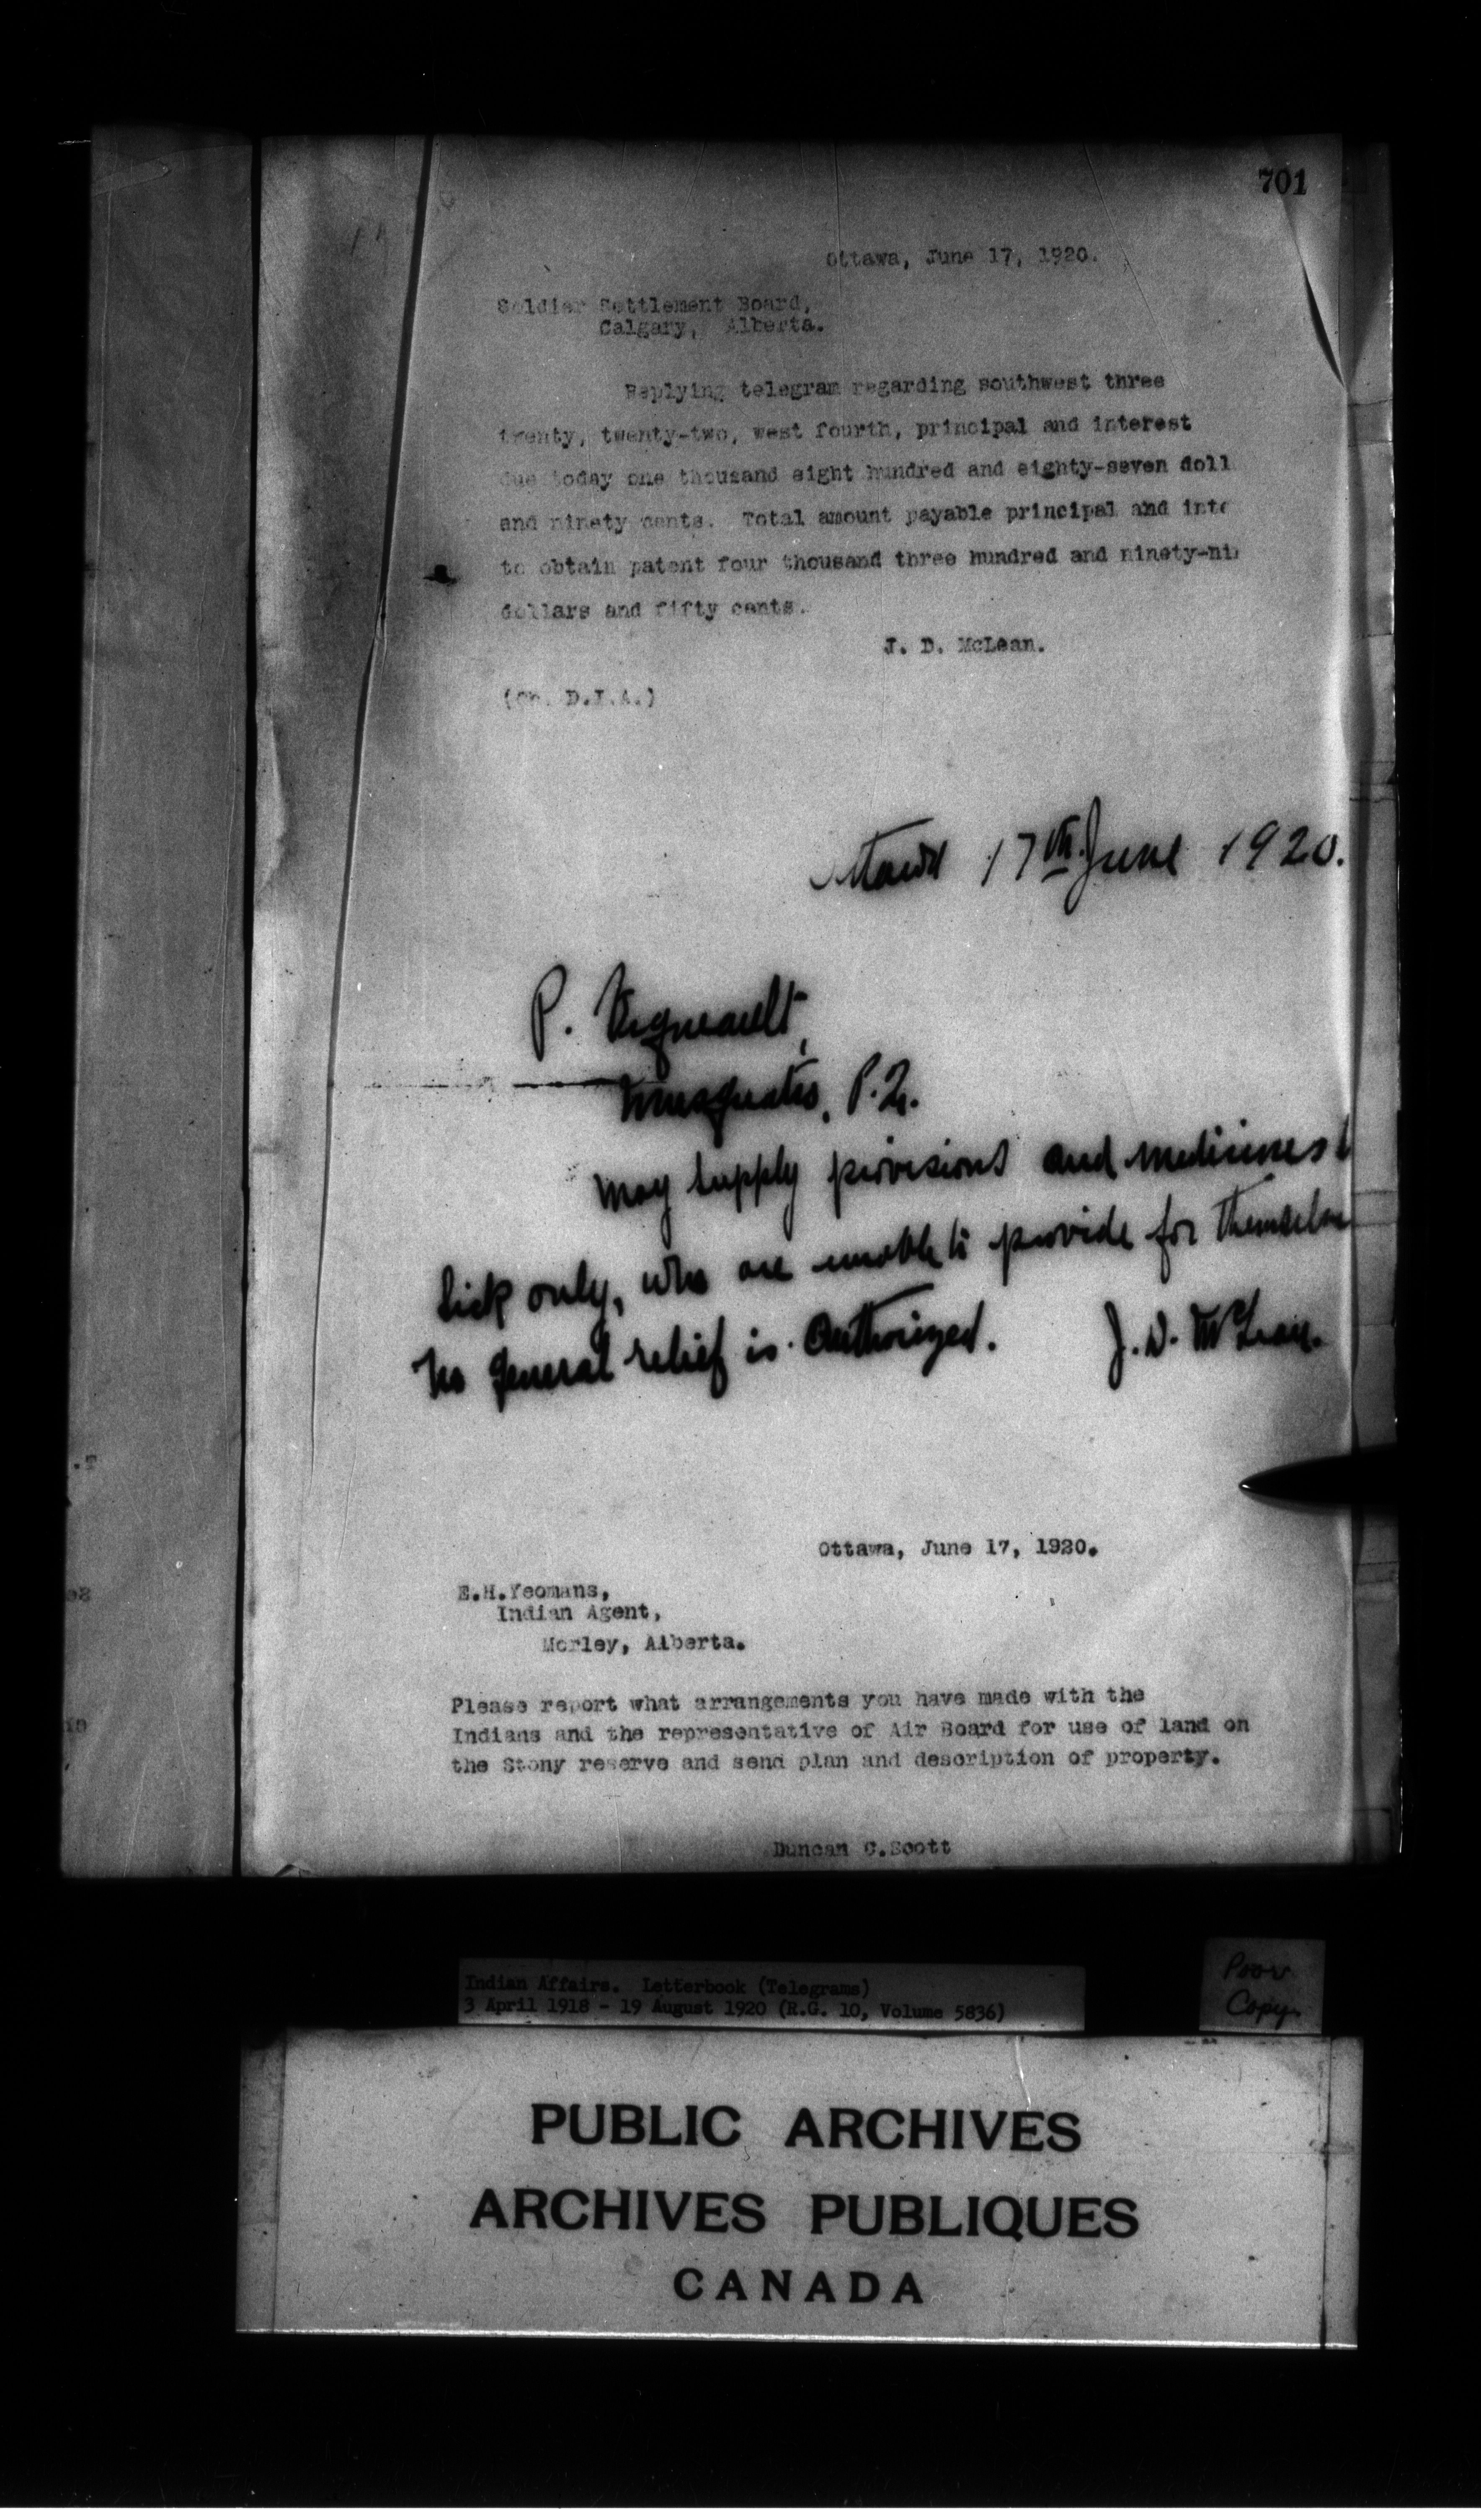 701
Ottawa, June 17, 1920.
Soldier Settlement Board,
Calgary, Alberta.
Replying telegram regarding southwest three
twenty, twenty-two, west fourth, principal and interest
due today one thousand eight hundred and eighty-seven doll
and ninety cents. Total amount payable principal and inte
to obtain patent four thousand three hundred and ninety-ni
dollars and fifty cents.
J. D. McLean.
(Ch. D.I.A.)
Ottawa 17th June 1920.
P. Vigneault,
P.Q.
May supply provisions and medicines t
sick only, who are unable to provide for themselve
No general relief is authorized. J. D. McLean.
Ottawa, June 17, 1920.
E.H.Yeomans,
Indian Agent,
Morley, Alberta.
Please report what arrangements you have made with the
Indians and the representative of Air Board for use of land on
the Stony reserve and send plan and description of property.
Duncan C.Scott
Indian Affairs. Letterbook (Telegrams)
3 April 1918 - 19 August 1920 (R.G. 10, Volume 5836)
Poor
Copy
PUBLIC ARCHIVES
ARCHIVES PUBLIQUES
CANADA